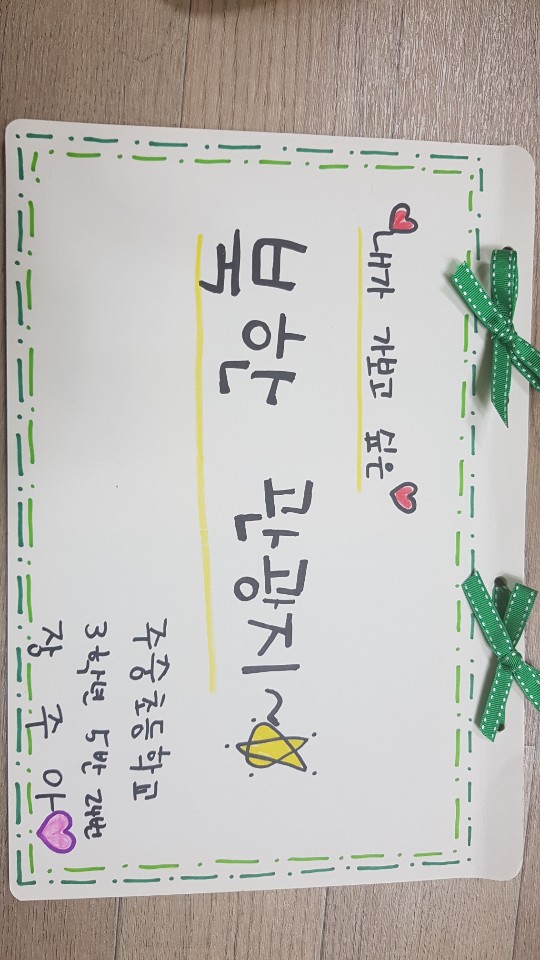 내가 가보고 싶은
북한 관광지~
주중초등학교
3학년 5반 24번
장주아